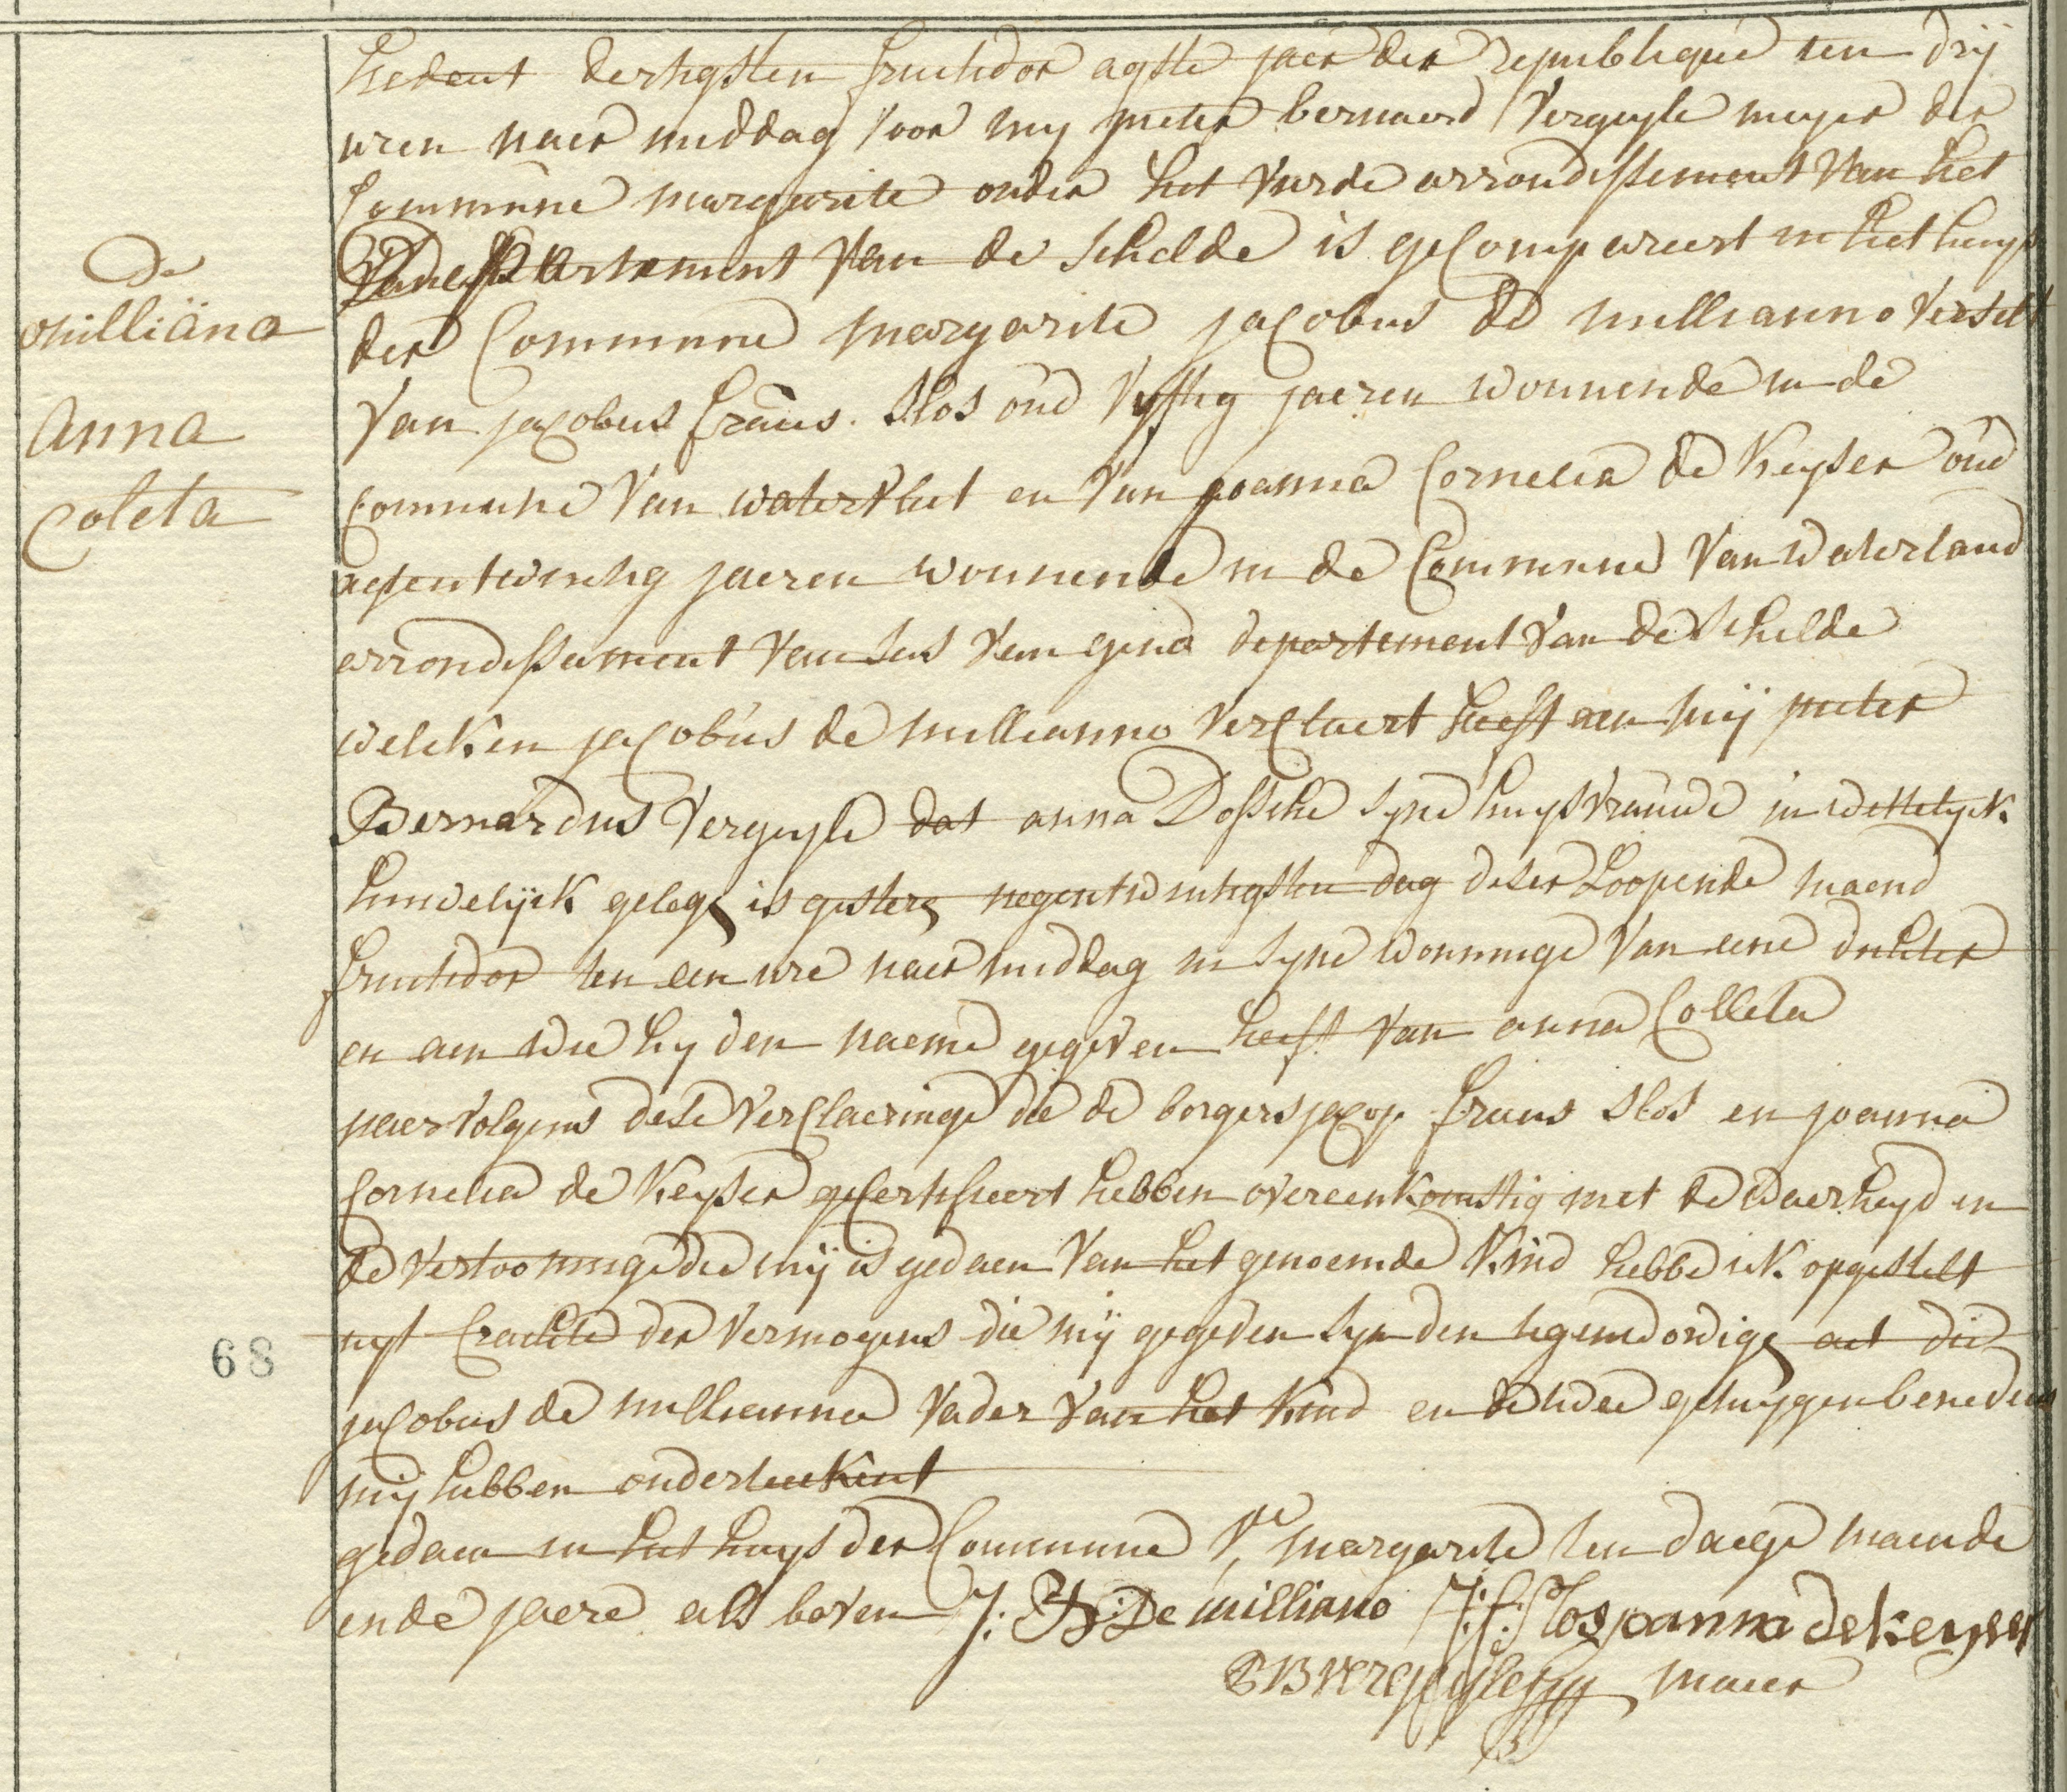 De
milliäna
Anna
Coleta
68
hedent dertighsten fruchtdor agste jaer der republique ten drij
uren naer middag voor my pieter bernaerd Vergeyle meyer der
Commune margarite onder het vierde arrondissement van het
departement van de schelde is geCompareert in het huys
der Commune margarite jaCobus de millianno verselt
van jaCobus frans slos oud vyftig jaeren wonnende in de
Commune van watervliet en van joanna Cornelia de Keyser oud
agtentwintig jaeren wonnende in de Commune van waterland
arrondissement van sas van gend departement van de schelde
welcken jaCobus de millianno verClaert heeft aen mij pieter
Bernardus Vergeyle dat anna Dossche syne huysvrauwe in wettelyck
huwelijck geleg is gisteren negentwintigsten dag deser Loopende maend
fruchtdor ten een ure naer middag in syne wonninge van eene dochter
en aen wie hy den naeme gegeven heeft van anna Colleta
naervolgens dese verClaeringe die de borgers jacop frans slos en joanna
Cornelia de Keyser geCertifieert hebben overeenkomstig met de waerheyd en
de vertooninge die mij is gedaen van het genoemde kind hebbe ick opgestelt
uyt Crachte der vermogens die mij gegeven syn den tegenwordigen act die
jaCobus de millianna vader van het kind en de twee getuygen beneven
mij hebben onderteekent
gedaen in het huys der Commune Ste margarite ten daege maende
ende jaere als boven J: B: De milliano J: f: Slos joanna dekeyser
P B Vergeyle maier